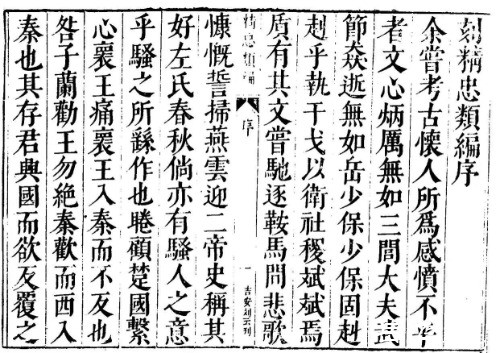 刻精忠類編序
余嘗考古懷人所爲感憤不平
者文心炳厲無如三閭大夫武
節猋逝無如岳少保少保固赳
赳乎執干戈以衛社稷斌斌焉
質有其文嘗馳逐鞍馬間悲歌
精忠類編
序
一
慷慨誓掃燕雲迎二帝史稱其
好左氏春秋倘亦有騷人之意
乎騷之所繇作也睠顧楚國繫
心襄王痛襄王入秦而不反也
咎子蘭勸王勿絶秦歡而西入
秦也其存君興國而欲反覆之